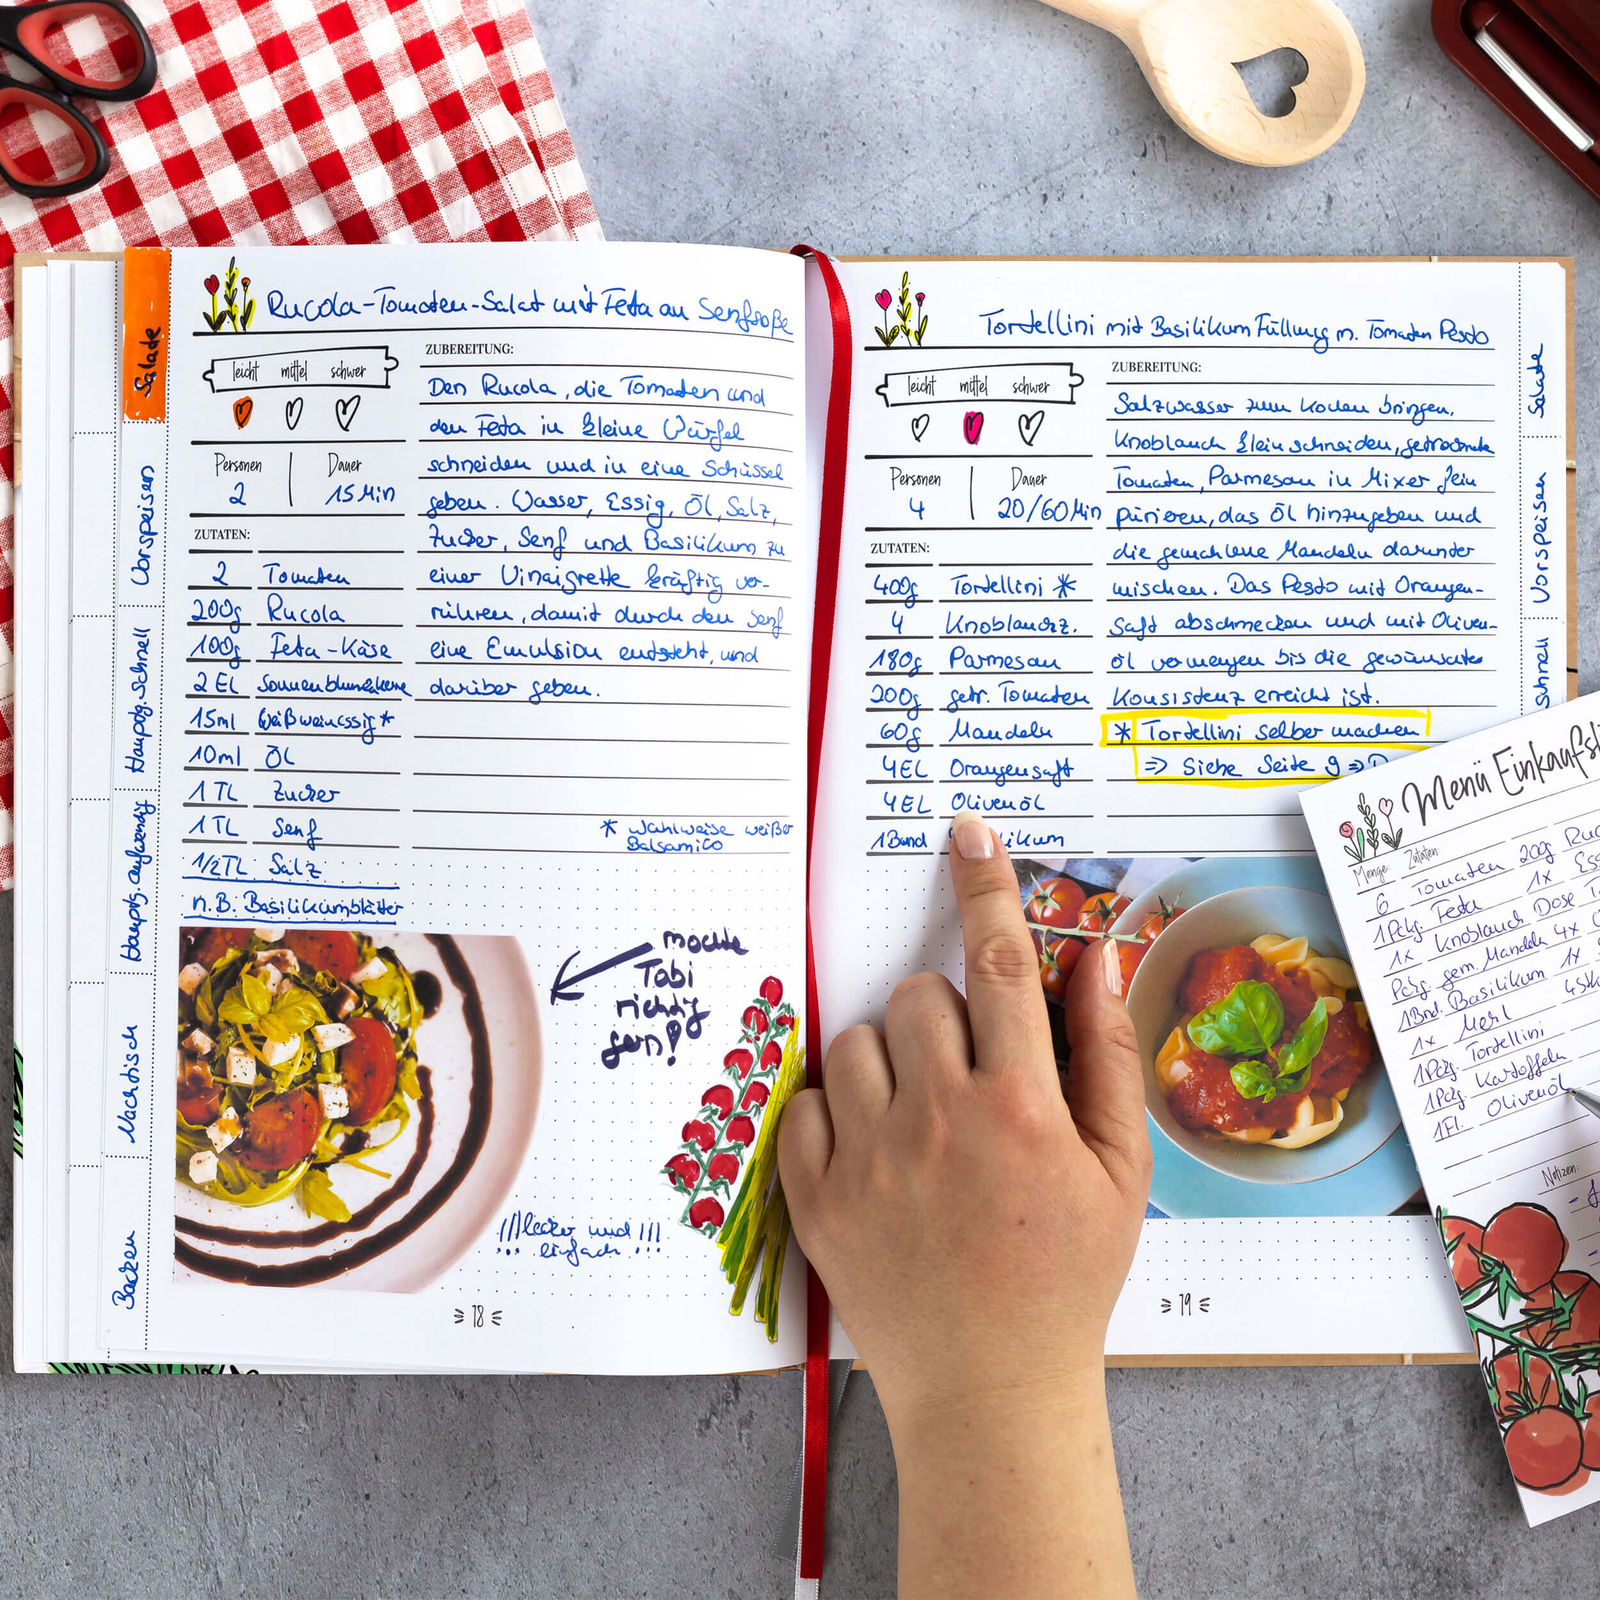 Salade
Vorspeisen
Hauptg. schnell
Hauptg. aufwendig
Nachtisch
Backen
Rucola-Tomaten-Salat mit Feta an Senfsoße
leicht mittel schwer
Personen
2
Dauer
15 Min
ZUTATEN:
2 Tomaten
200g Rucola
100g Feta-Käse
2 EL Sonnenblumenkerne
15ml Weißweinessig*
10ml Öl
1 TL Zucker
1 TL Senf
1/2 TL Salz
n.B. Basilikumblätter
ZUBEREITUNG:
Den Rucola, die Tomaten und
den Feta in kleine Würfel
schneiden und in eine Schüssel
geben. Wasser, Essig, Öl, Salz,
Zucker, Senf und Basilikum zu
einer Vinaigrette kräftig ver-
rühren, damit durch den Senf
eine Emulsion entsteht, und
darüber geben.
* Wahlweise weißer
Balsamico
mochte
Tobi
richtig
gern!
!!! lecker und !!!
einfach
18
Tortellini mit Basilikum Füllung m. Tomaten Pesto
leicht mittel schwer
Personen
4
Dauer
20/60 Min
ZUTATEN:
400g Tortellini *
4 Knoblauchz.
180g Parmesan
200g getr. Tomaten
60g Mandeln
4EL Orangensaft
4EL Olivenöl
1Bund ilikum
ZUBEREITUNG:
Salzwasser zum Kochen bringen.
Knoblauch klein schneiden, getrocknete
Tomaten, Parmesan in Mixer fein
pürieren, das Öl hinzugeben und
die gemahlene Mandeln darunter
mischen. Das Pesto mit Orangen-
saft abschmecken und mit Oliven-
öl vermengen bis die gewünschte
Konsistenz erreicht ist.
* Tortellini selber machen
=> Siehe Seite 9 =>
19
Salate
Vorspeisen
schnell
Menü Einkaufsli
Menge: Zutaten:
6 Tomaten 200g Ruc
1Pckg. Feta 1x Ess
1x Knoblauch Dose T
Pckg. gem. Mandeln 4x
1Bnd. Basilikum 1x
1x Mehl
1Pckg. Tortellini
1Pckg. Kartoffeln
1Fl. Olivenöl
Notizen: